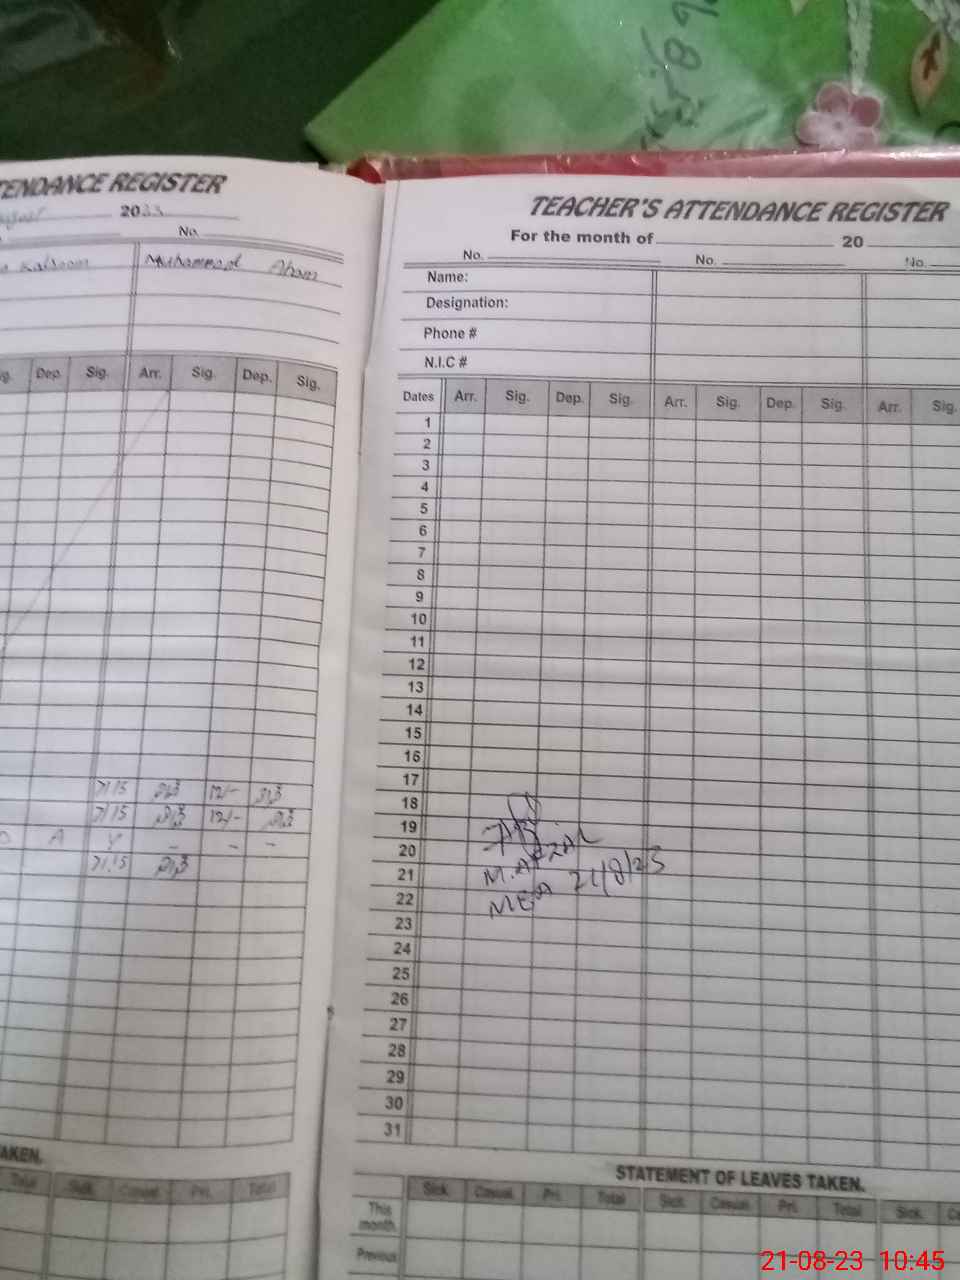 TENDANCE REGISTER
20
No.
Muhammad
Dep. Sig. Arr. Sig. Dep. Sig.
7/15 12/-
7/15 12/-
D A Y - - -
7/:15
AKEN.
Total Sick Casual Pri. Total
TEACHER'S ATTENDANCE REGISTER
For the month of 20
No. No. No.
Name:
Designation:
Phone #
N.I.C #
Dates Arr. Sig. Dep. Sig. Arr. Sig. Dep. Sig. Arr. Sig.
1
2
3
4
5
6
7
8
9
10
11
12
13
14
15
16
17
18
19
20
21
22
23
24
25
26
27
28
29
30
31
M. AFZAL
MEA 21/8/23
STATEMENT OF LEAVES TAKEN.
Sick Casual Pri. Total Sick Casual Pri. Total Sick. Ca
This month
Previous
21-08-23 10:45